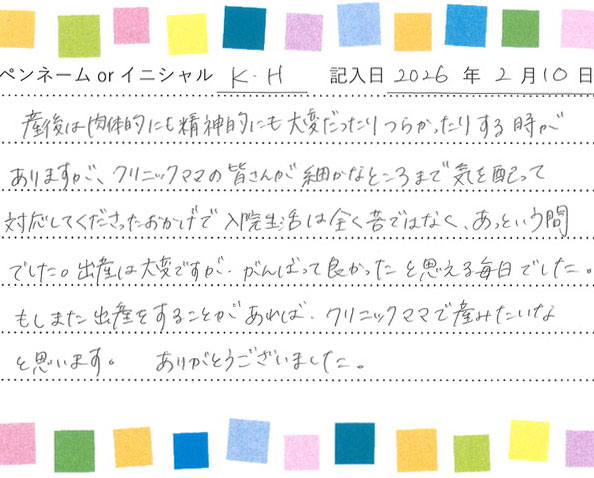 ペンネーム or イニシャル K.H 記入日 2026 年 2 月 10 日
産後は肉体的にも精神的にも大変だったりつらかったりする時が
ありますが、クリニックママの皆さんが細かなところまで気を配って
対応してくださったおかげで入院生活は全く苦ではなく、あっという間
でした。出産は大変ですが、がんばって良かったと思える毎日でした。
もしまた出産をすることがあれば、クリニックママで産みたいな
と思います。 ありがとうございました。